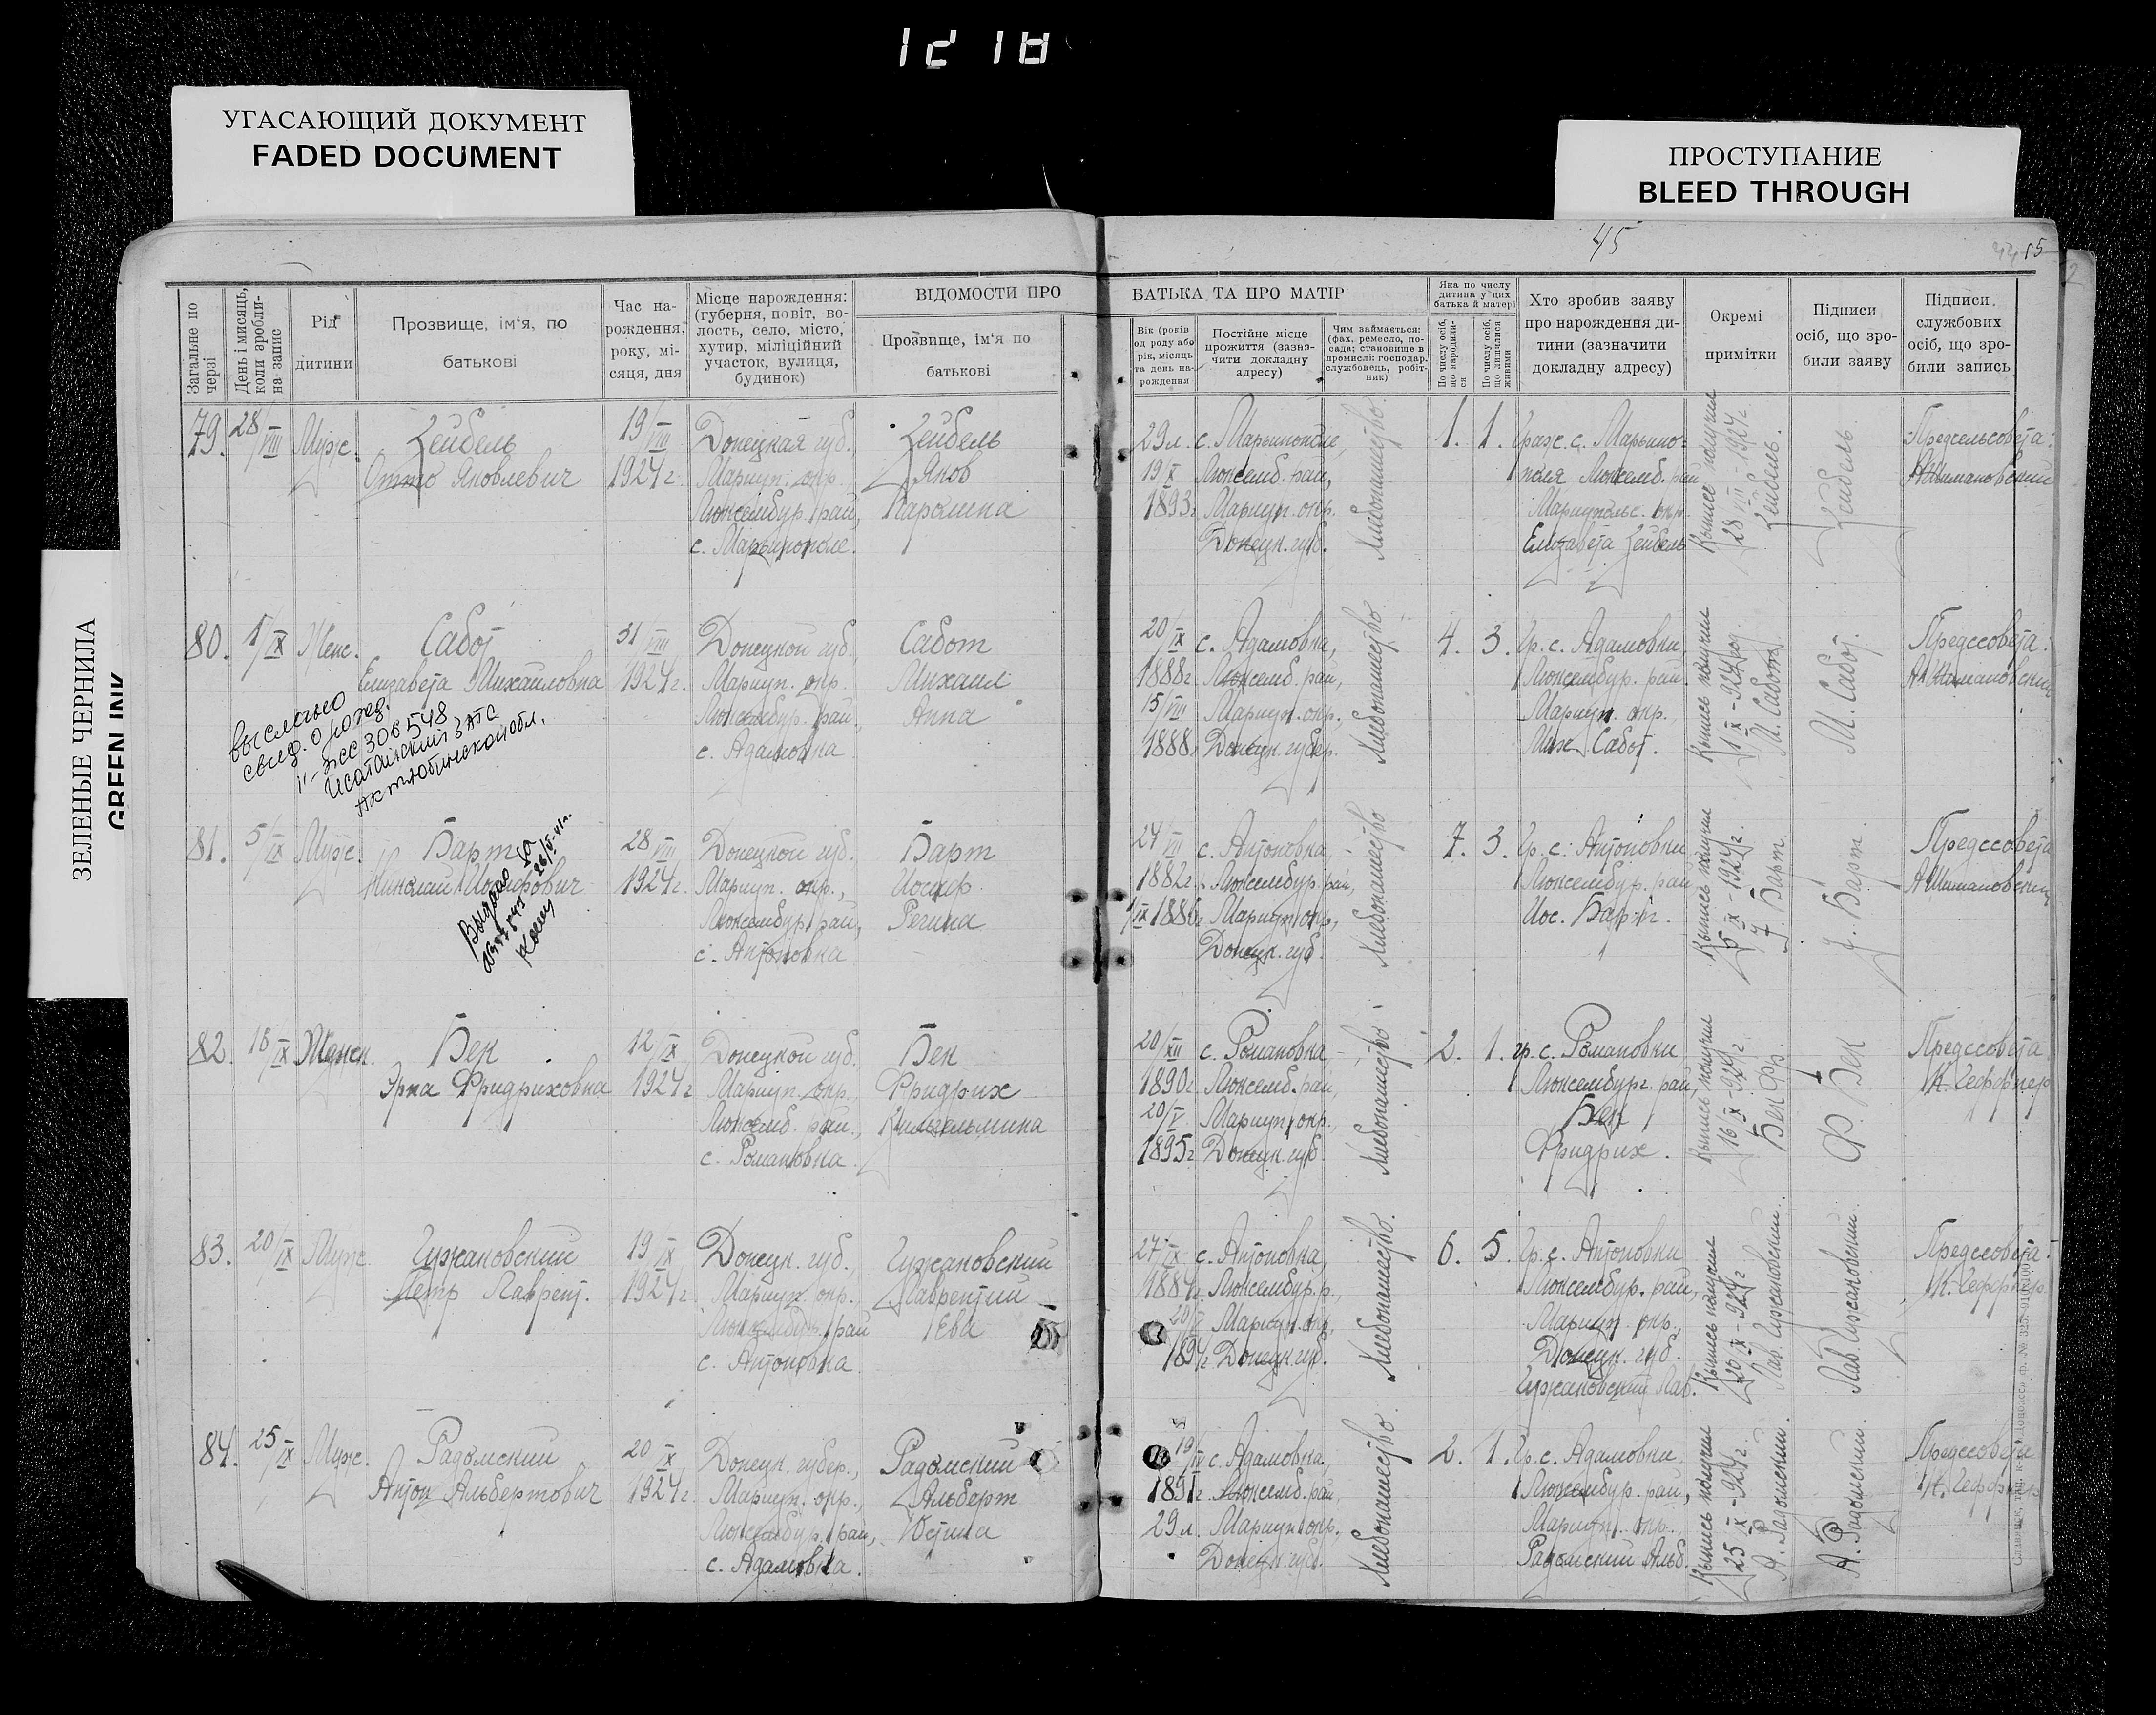 1218
УГАСАЮЩИЙ ДОКУМЕНТ
FADED DOCUMENT
ПРОСТУПАНИЕ
BLEED THROUGH
ЗЕЛЕНЫЕ ЧЕРНИЛА
GREEN INK
45
Загальне по черзі
День і мисяць, коли зробили на запис
Рід дитини
Прозвище, ім'я, по батькові
Час народження, року, місяця, дня
Місце народження: (губерня, повіт, волость, село, місто, хутир, міліційний участок, вулиця, будинок)
ВІДОМОСТИ ПРО БАТЬКА ТА ПРО МАТІР
Прозвище, ім'я по батькові
Вік (років од роду або рік, місяць та день народження
Постійне місце прожиття (зазначити докладну адресу)
Чим займається: (фах, ремесло, посада; становище в промислі: господар, службовець, робітник)
Яка по числу дитина у цих батька й матері
По числу осіб, що народилися
По числу осіб, що лишилися живими
Хто зробив заяву про нарождення дитини (зазначити докладну адресу)
Окремі примітки
Підписи осіб, що зробили заяву
Підписи службових осіб, що зробили запись
79. 28/VIII Муж. Цейбель 19/VIII Донецкая губ., Цейбель
Отто Яковлевич 1924 г. Мариуп. окр. Яков
Люксембур. рай, Каролина
с. Марьинополе.
29 л. с. Марьинополе, Хлебопашество. 1. 1. Граж. с. Марьино-
19/X Люксемб. рай, поля Люксемб. рай
1893 г. Мариуп. окр. Мариупольс. окр.
Донецк. губ. Елизавета Цейбель
28/VIII-1924 г.
Цейбель.
Цейбель.
Предсельсовета:
80. 1/IX Женс. Сабот 31/VIII Донецкой губ., Сабот
Елизавета Михайловна 1924 г. Мариуп. окр. Михаил
Люксембур. рай, Анна
с. Адамовка
20/IX с. Адамовка, Хлебопашество. 4. 3. Гр. с. Адамовки,
1888 г. Люксемб. рай, Люксембур. рай.
15/VIII Мариуп. окр., Мариуп. окр.
1888 Донецк. губер. Мих. Сабот.
М. Сабот.
М. Сабот.
Предссовета:
выслано
свид. о рожд.
306548
ЗАГС
Актюбинской обл.
81. 5/IX Муж. Барт 28/VIII Донецкой губ. Барт
Николай Иосифович 1924 г. Мариуп. окр., Иосиф.
Люксембур. рай, Регина
с. Антоновка
24/VII с. Антоновка, Хлебопашество 7. 3. Гр. с. Антоновки
1882 г. Люксембур. рай, Люксембур. рай
IX 1886 г. Мариуп. окр, Иос. Барт.
Донецк. губ.
5/IX-1924 г.
Барт
Барт.
Предссовета
Выдано
82. 16/IX Женск. Бек 12/IX Донецкой губ. Бек
Эрна Фридриховна 1924 г Мариуп. окр., Фридрих
Люксемб. рай., Вильгельмина
с. Романовка.
20/XII с. Романовка Хлебопашество 2. 1. гр. с. Романовки
1890 г. Люксемб. рай, Люксембург. рай,
20/V Мариуп. окр., Бек
1895 г Донецк. губ. Фридрих.
16/IX-924 г.
Бек Фр.
Ф. Бек
Предссовета
83. 20/IX Муж. Гужановский 19/IX Донецк. губ., Гужановский
Петр Лаврент. 1924 г Мариуп. окр., Лаврентий
Люксембур. рай Ева
с. Антоновка
27/IX с. Антоновка, Хлебопашество. 6. 5. Гр. с. Антоновки
1884 г. Люксембур. р., Люксембур. рай,
Мариуп. окр, Мариуп. окр.,
Донецк. губ. Донецк. губ.
Гужановский Лав.
20/IX-924 г
Лав. Гужановский.
Лав. Гужановский.
Предссовета.
84. 25/IX Муж. Радомский 20/IX Донецк. губер., Радомский
Антон Альбертович 1924 г Мариуп. окр., Альберт
Люксембур. рай, Юстина
с. Адамовка.
19/IV с. Адамовка, Хлебопашество. 2. 1. Гр. с. Адамовки.
1891 г. Люксемб. рай, Люксембур. рай,
29 л. Мариуп. окр, Мариуп. окр.,
Донецк. губ. Радомский Альб.
25/IX-924 г.
А. Радомский.
А. Радомский.
Предссовета